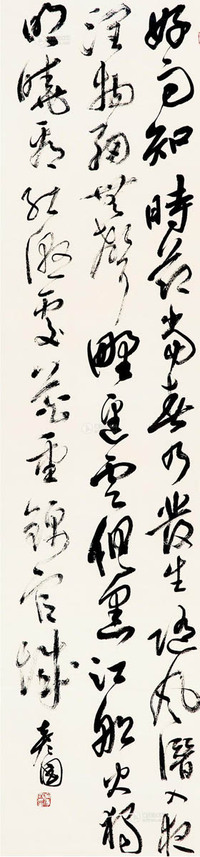 好雨知時節當春乃發生随風潛入夜
潤物細無聲野徑雲俱黑江船火獨
明曉看紅濕處花重錦官城